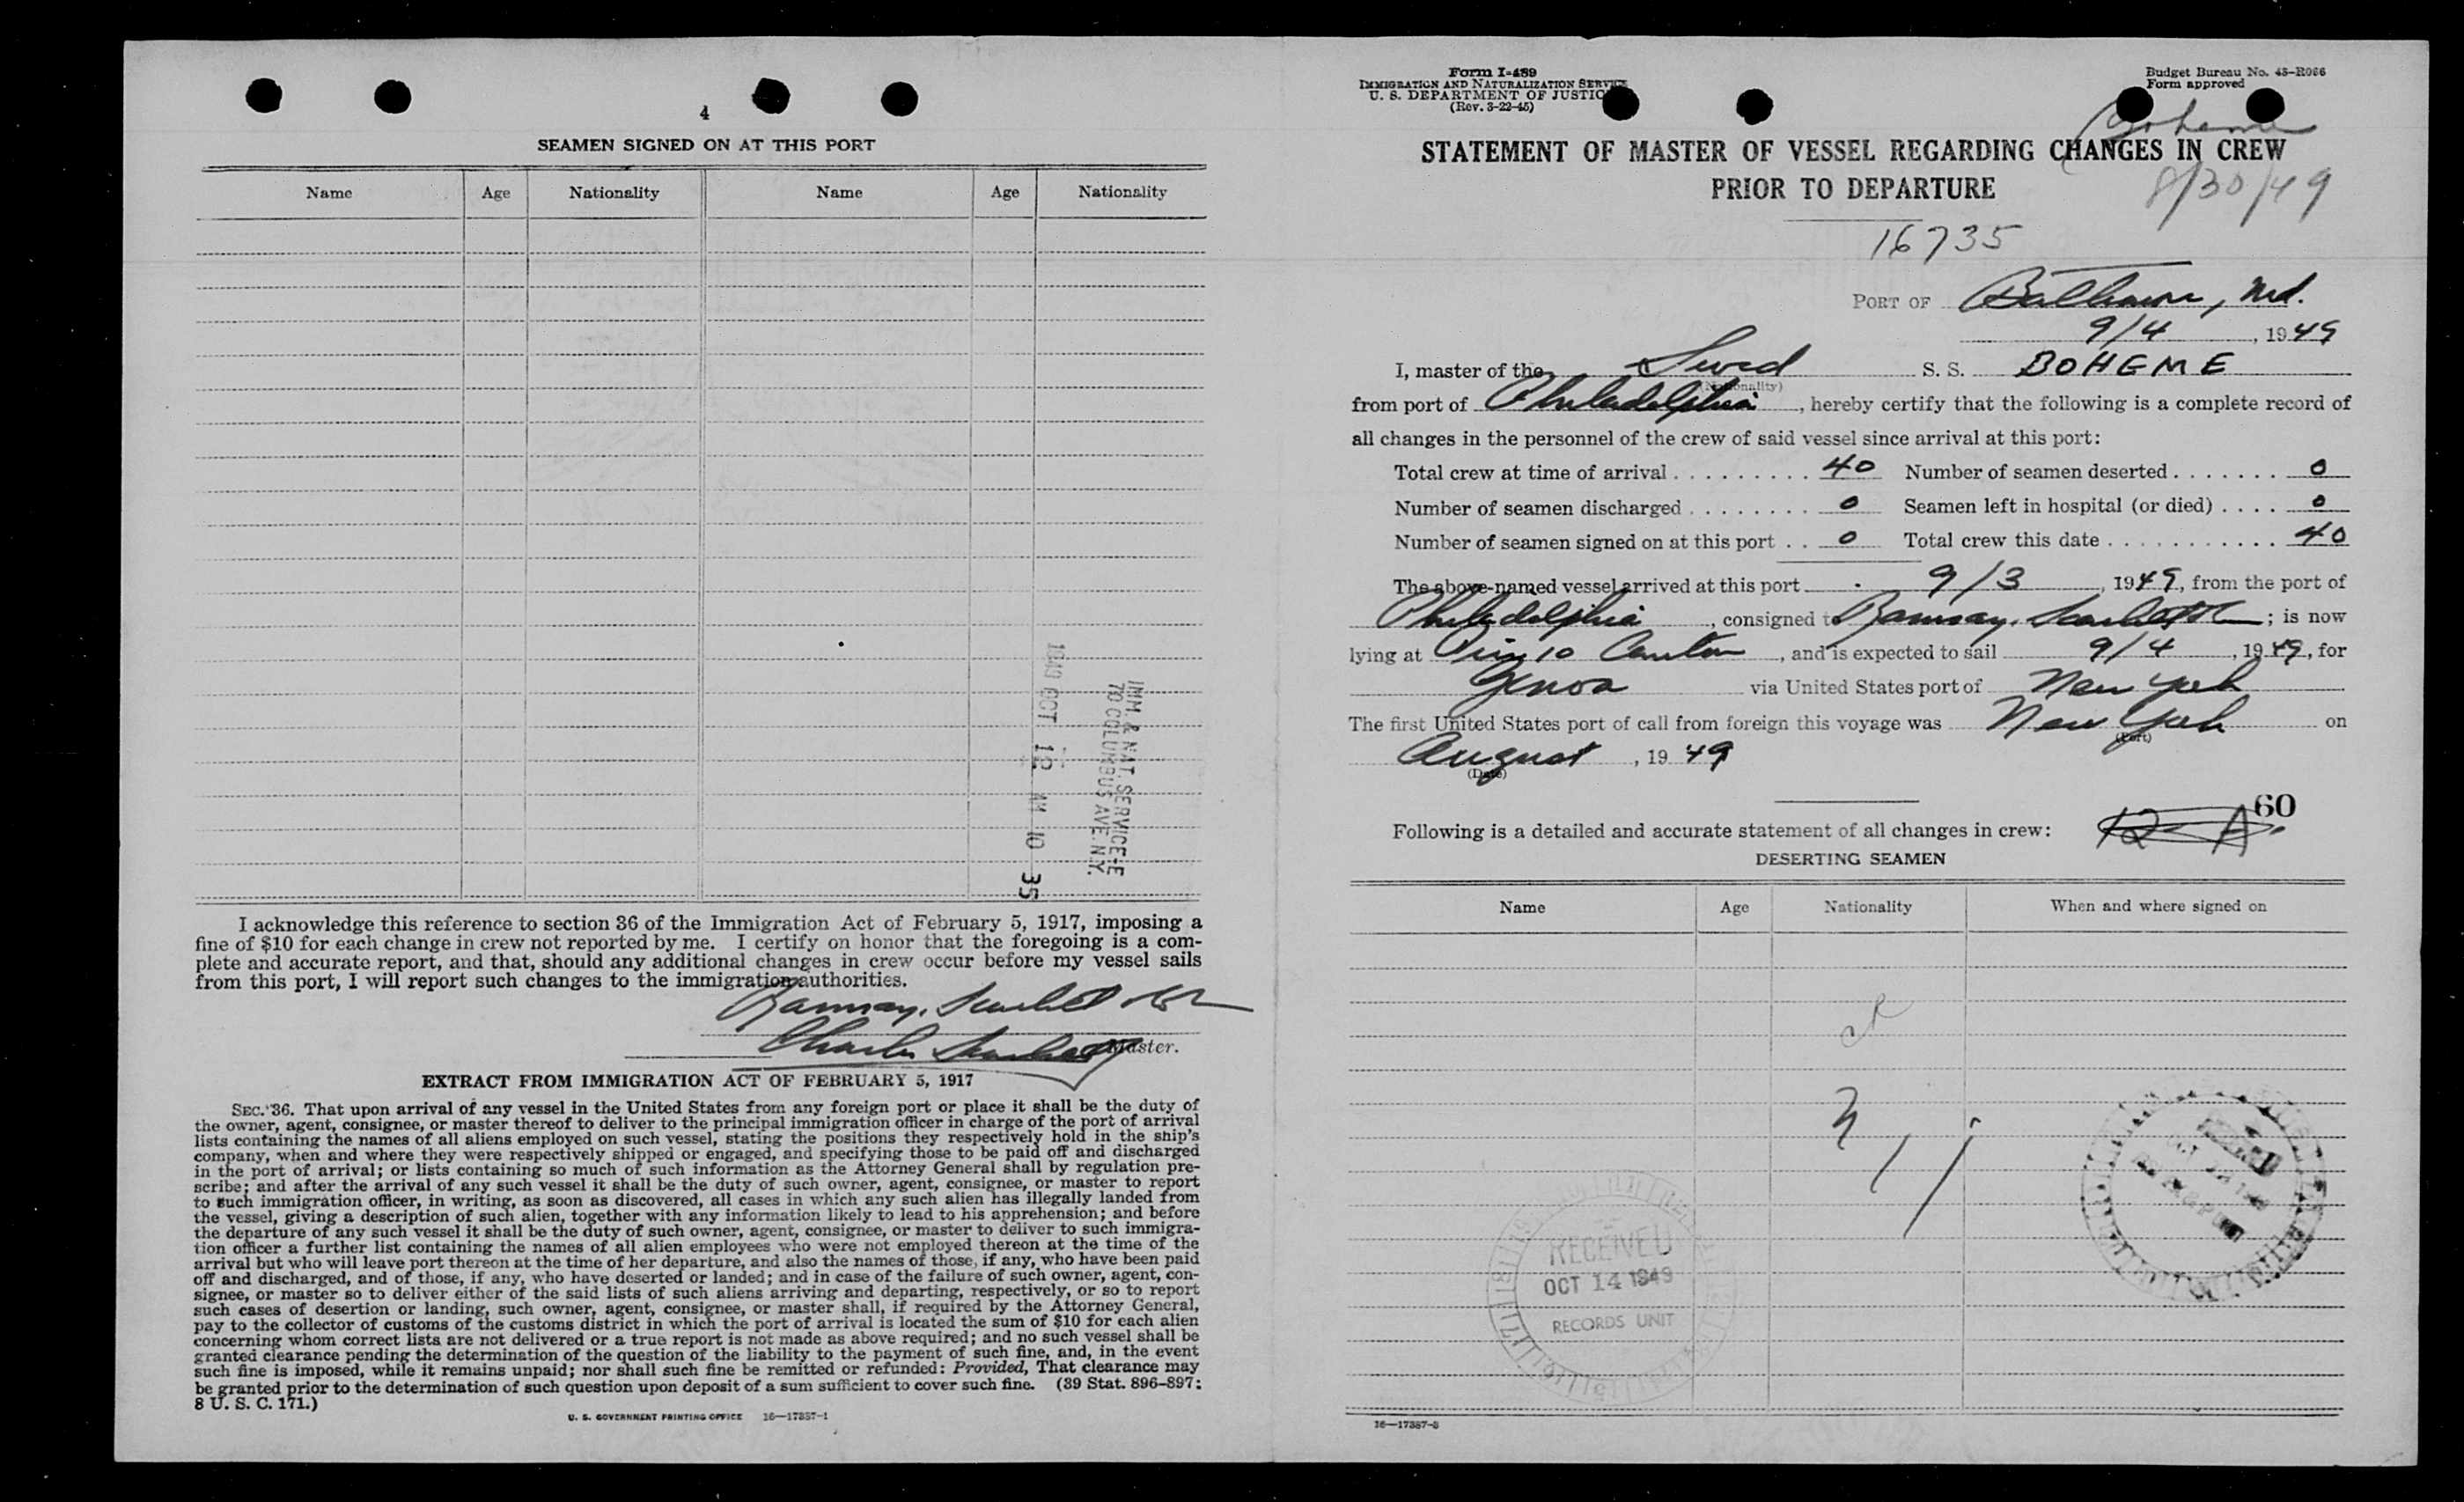 4
SEAMEN SIGNED ON AT THIS PORT
Name Age Nationality Name Age Nationality
1949 OCT 12 AM 10 35
IMM. & NAT. SERVICE-E
70 COLUMBUS AVE N.Y.
I acknowledge this reference to section 36 of the Immigration Act of February 5, 1917, imposing a
fine of $10 for each change in crew not reported by me. I certify on honor that the foregoing is a com-
plete and accurate report, and that, should any additional changes in crew occur before my vessel sails
from this port, I will report such changes to the immigration authorities.
Ramsay, Scarlett & Co
Charles Scarlett Master.
EXTRACT FROM IMMIGRATION ACT OF FEBRUARY 5, 1917
SEC. 36. That upon arrival of any vessel in the United States from any foreign port or place it shall be the duty of
the owner, agent, consignee, or master thereof to deliver to the principal immigration officer in charge of the port of arrival
lists containing the names of all aliens employed on such vessel, stating the positions they respectively hold in the ship's
company, when and where they were respectively shipped or engaged, and specifying those to be paid off and discharged
in the port of arrival; or lists containing so much of such information as the Attorney General shall by regulation pre-
scribe; and after the arrival of any such vessel it shall be the duty of such owner, agent, consignee, or master to report
to such immigration officer, in writing, as soon as discovered, all cases in which any such alien has illegally landed from
the vessel, giving a description of such alien, together with any information likely to lead to his apprehension; and before
the departure of any such vessel it shall be the duty of such owner, agent, consignee, or master to deliver to such immigra-
tion officer a further list containing the names of all alien employees who were not employed thereon at the time of the
arrival but who will leave port thereon at the time of her departure, and also the names of those, if any, who have been paid
off and discharged, and of those, if any, who have deserted or landed; and in case of the failure of such owner, agent, con-
signee, or master so to deliver either of the said lists of such aliens arriving and departing, respectively, or so to report
such cases of desertion or landing, such owner, agent, consignee, or master shall, if required by the Attorney General,
pay to the collector of customs of the customs district in which the port of arrival is located the sum of $10 for each alien
concerning whom correct lists are not delivered or a true report is not made as above required; and no such vessel shall be
granted clearance pending the determination of the question of the liability to the payment of such fine, and, in the event
such fine is imposed, while it remains unpaid; nor shall such fine be remitted or refunded: Provided, That clearance may
be granted prior to the determination of such question upon deposit of a sum sufficient to cover such fine. (39 Stat. 896-897;
8 U. S. C. 171.)
U. S. GOVERNMENT PRINTING OFFICE 16—17357-1
Form I-489
IMMIGRATION AND NATURALIZATION SERVICE
U. S. DEPARTMENT OF JUSTICE
(Rev. 3-22-45)
Budget Bureau No. 43-R066
Form approved
Boheme
STATEMENT OF MASTER OF VESSEL REGARDING CHANGES IN CREW
PRIOR TO DEPARTURE
8/30/49
16735
PORT OF Baltimore, Md.
9/4, 1949
I, master of the Swed S. S. BOHEME
(Nationality)
from port of Philadelphia, hereby certify that the following is a complete record of
all changes in the personnel of the crew of said vessel since arrival at this port:
Total crew at time of arrival 40 Number of seamen deserted 0
Number of seamen discharged 0 Seamen left in hospital (or died) 0
Number of seamen signed on at this port 0 Total crew this date 40
The above-named vessel arrived at this port 9/3, 1949, from the port of
Philadelphia, consigned to Ramsay, Scarlett & Co; is now
lying at Pier 10 Canton, and is expected to sail 9/4, 1949, for
Genoa via United States port of New York
The first United States port of call from foreign this voyage was New York on
(Port)
August, 1949
(Date)
60
Following is a detailed and accurate statement of all changes in crew: 12-A
DESERTING SEAMEN
Name Age Nationality When and where signed on
RECEIVED
OCT 14 1949
RECORDS UNIT
16—17357-3